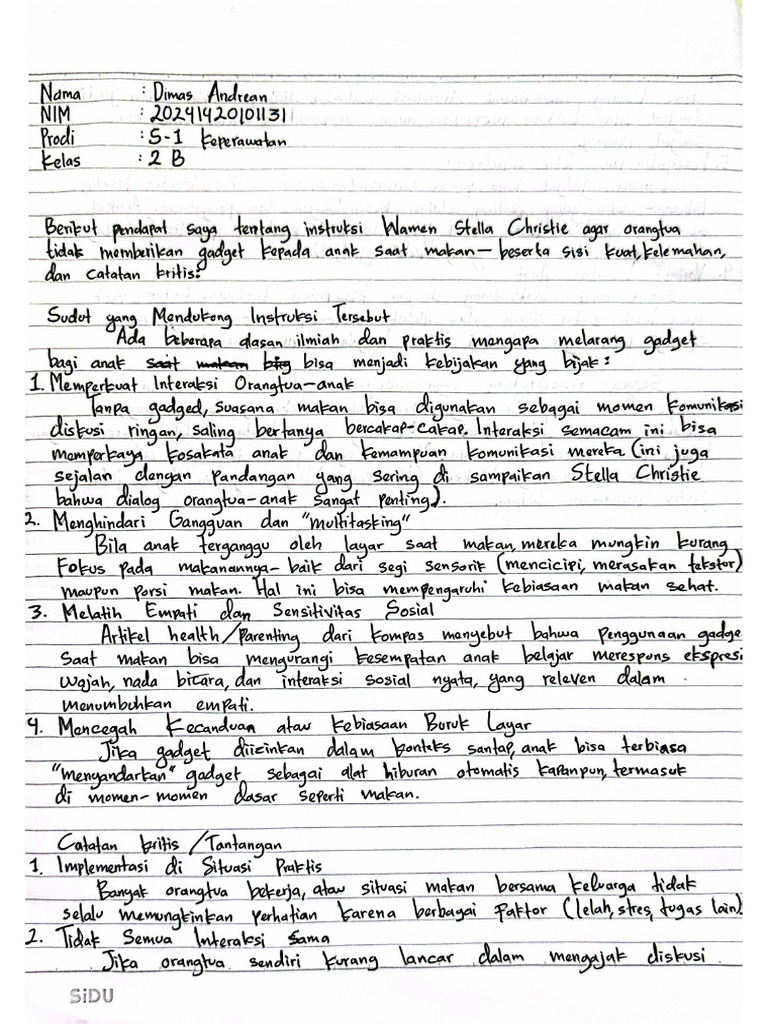 Nama : Dimas Andrean
NIM : 20241420101131
Prodi : S-1 Keperawatan
Kelas : 2 B
Berikut pendapat saya tentang instruksi Wamen Stella Christie agar orangtua
tidak memberikan gadget kepada anak saat makan — beserta sisi kuat, kelemahan,
dan catatan kritis:
Sudut yang Mendukung Instruksi Tersebut
Ada beberapa alasan ilmiah dan praktis mengapa melarang gadget
bagi anak saat makan big bisa menjadi kebijakan yang bijak :
1. Memperkuat Interaksi Orangtua-anak
Tanpa gadged, suasana makan bisa digunakan sebagai momen komunikasi
diskusi ringan, saling bertanya bercakap-cakap. Interaksi semacam ini bisa
memperkaya kosakata anak dan kemampuan komunikasi mereka (ini juga
sejalan dengan pandangan yang sering di sampaikan Stella Christie
bahwa dialog orangtua-anak sangat penting).
2. Menghindari Gangguan dan "multitasking"
Bila anak terganggu oleh layar saat makan, mereka mungkin kurang
Fokus pada makanannya - baik dari segi sensorik (mencicipi, merasakan tekstor)
maupun porsi makan. Hal ini bisa mempengaruhi kebiasaan makan sehat.
3. Melatih Empati dan Sensitivitas Sosial
Artikel health/parenting dari kompas menyebut bahwa penggunaan gadge
saat makan bisa mengurangi kesempatan anak belajar merespons ekspresi
wajah, nada bicara, dan interaksi sosial nyata, yang releven dalam
menumbuhkan empati.
4. Mencegah Kecanduan atau Kebiasaan Buruk Layar
Jika gadget diizinkan dalam konteks santap, anak bisa terbiasa
"menyandarkan" gadget sebagai alat hiburan otomatis kapanpun, termasuk
di momen-momen dasar seperti makan.
Catatan kritis / Tantangan
1. Implementasi di Situasi Praktis
Banyak orangtua bekerja, atau situasi makan bersama keluarga tidak
selalu memungkinkan perhatian karena berbagai faktor (lelah, stres, tugas lain)
2. Tidak Semua Interaksi Sama
Jika orangtua sendiri kurang lancar dalam mengajak diskusi
SiDU